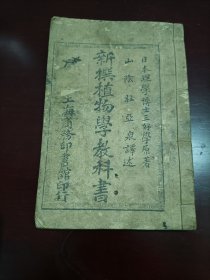 日本理學博士三好學原著
山陰杜亞泉譯述
新撰植物學教科書
上海商務印書館印行